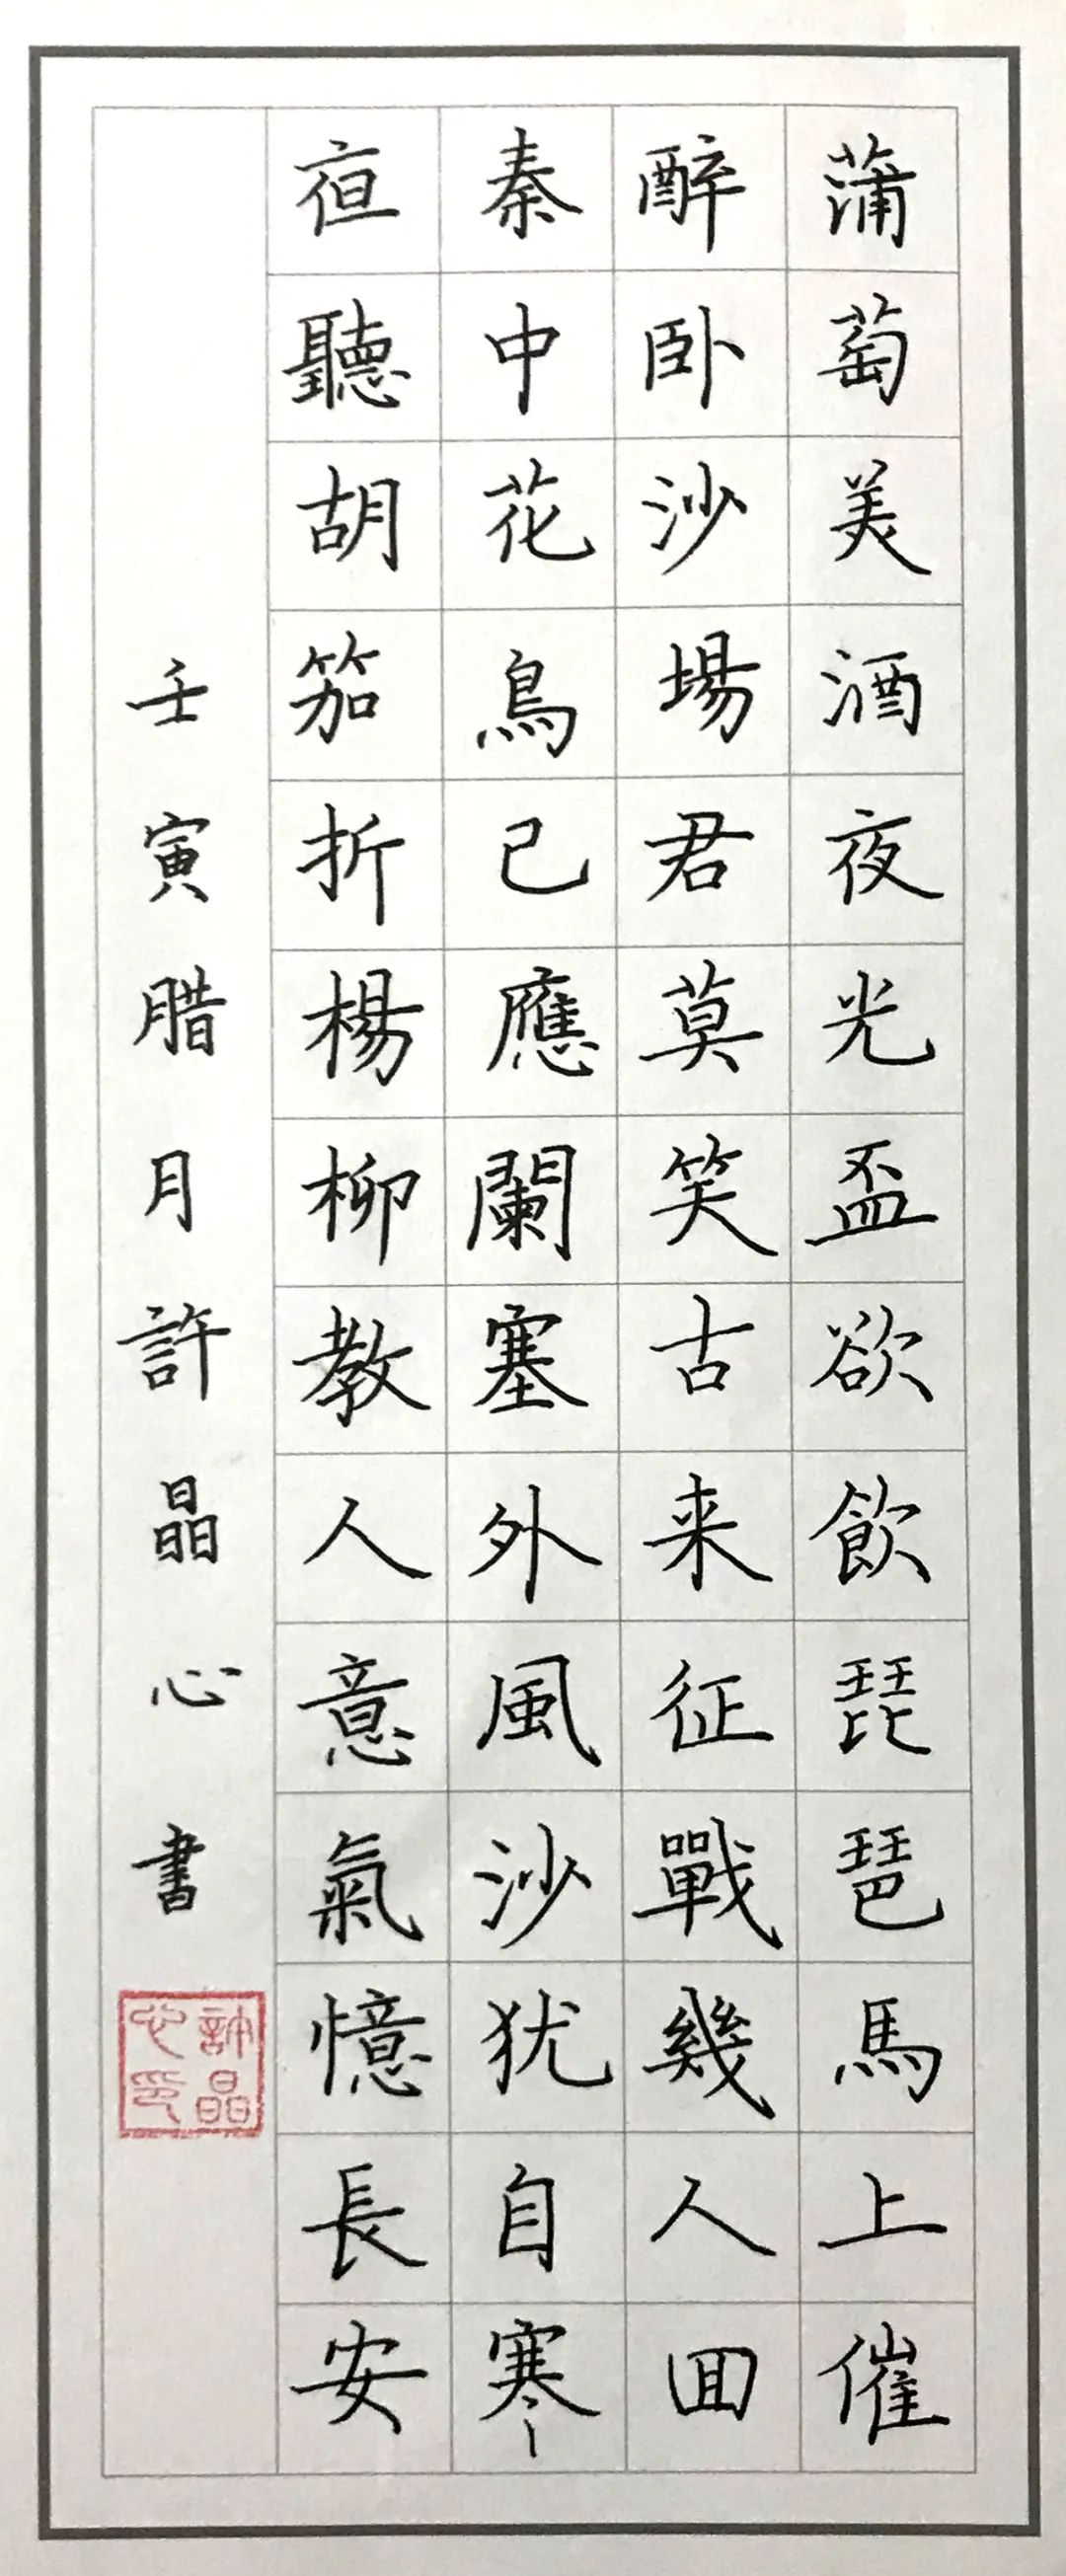 蒲萄美酒夜光盃欲飲琵琶馬上催
醉卧沙場君莫笑古来征戰幾人回
秦中花鳥已應闌塞外風沙犹自寒
夜聽胡笳折楊柳教人意氣憶長安
壬寅腊月許晶心書
許晶心印